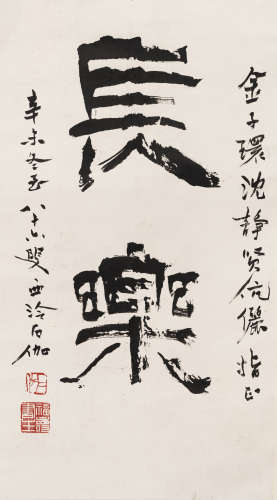 金子環沈静賢伉儷指正
長樂
辛未冬至八十六叟西泠石伽